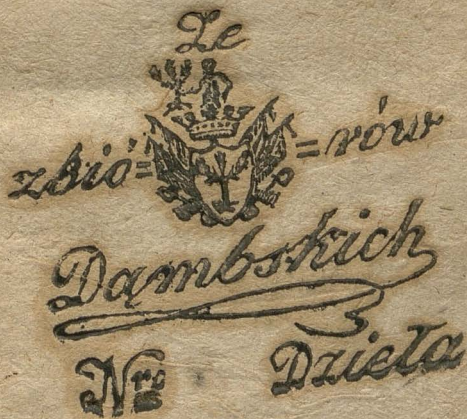 Ze
zbió= =rów
Dąmbskich
Nro Dzieła